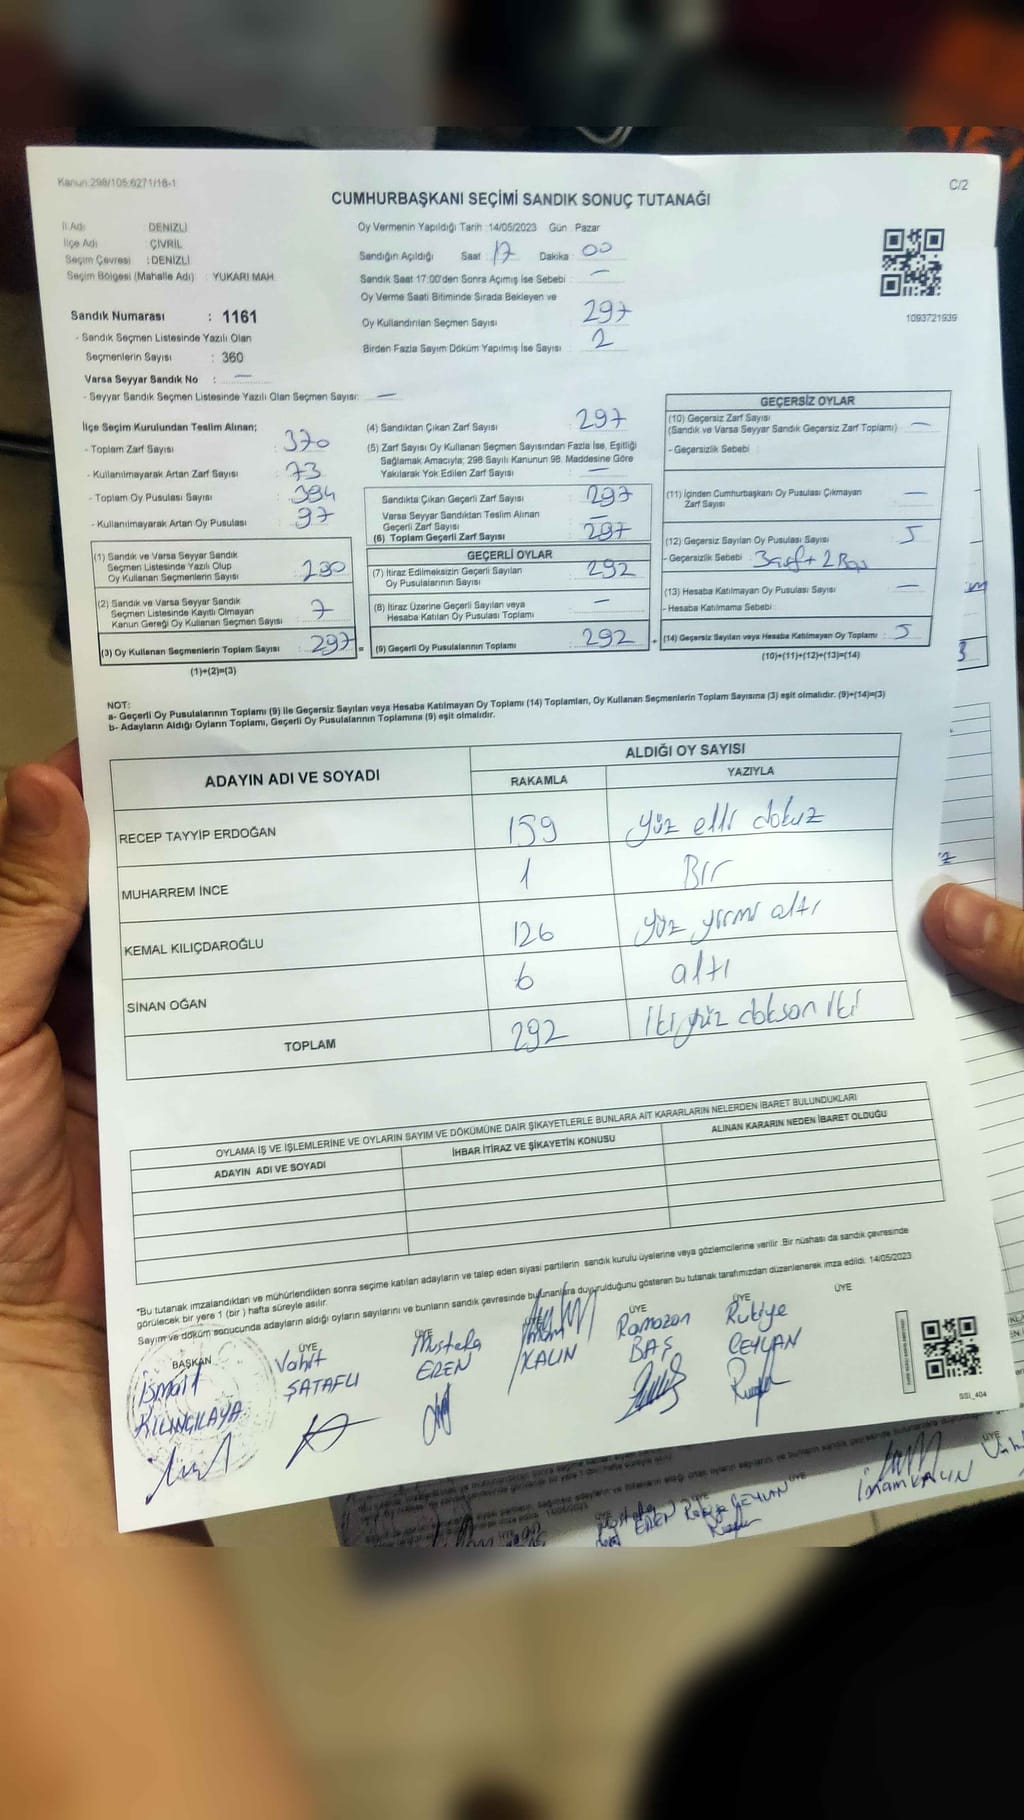 Kanun:298/105;6271/18-1
C/2
CUMHURBAŞKANI SEÇİMİ SANDIK SONUÇ TUTANAĞI
İl Adı DENİZLİ
İlçe Adı ÇİVRİL
Seçim Çevresi : DENİZLİ
Seçim Bölgesi (Mahalle Adı) : YUKARI MAH.
Oy Vermenin Yapıldığı Tarih :14/05/2023 Gün Pazar
Sandığın Açıldığı Saat : 17 Dakika : 00
Sandık Saat 17:00'den Sonra Açımış İse Sebebi : —
Oy Verme Saati Bitiminde Sırada Bekleyen ve
Oy Kullandırılan Seçmen Sayısı : 297
Birden Fazla Sayım Döküm Yapılmış İse Sayısı : 2
1093721939
Sandık Numarası : 1161
- Sandık Seçmen Listesinde Yazılı Olan
Seçmenlerin Sayısı : 360
Varsa Seyyar Sandık No : —
- Seyyar Sandık Seçmen Listesinde Yazılı Olan Seçmen Sayısı: —
İlçe Seçim Kurulundan Teslim Alınan;
- Toplam Zarf Sayısı : 370
- Kullanılmayarak Artan Zarf Sayısı : 73
- Toplam Oy Pusulası Sayısı : 394
- Kullanılmayarak Artan Oy Pusulası : 97
(1) Sandık ve Varsa Seyyar Sandık
Seçmen Listesinde Yazılı Olup
Oy Kullanan Seçmenlerin Sayısı : 290
(2) Sandık ve Varsa Seyyar Sandık
Seçmen Listesinde Kayıtlı Olmayan
Kanun Gereği Oy Kullanan Seçmen Sayısı : 7
(3) Oy Kullanan Seçmenlerin Toplam Sayısı : 297
(1)+(2)=(3)
(4) Sandıktan Çıkan Zarf Sayısı : 297
(5) Zarf Sayısı Oy Kullanan Seçmen Sayısından Fazla İse, Eşitliği
Sağlamak Amacıyla; 298 Sayılı Kanunun 98. Maddesine Göre
Yakılarak Yok Edilen Zarf Sayısı : —
Sandıkta Çıkan Geçerli Zarf Sayısı : 297
Varsa Seyyar Sandıktan Teslim Alınan
Geçerli Zarf Sayısı : —
(6) Toplam Geçerli Zarf Sayısı : 297
GEÇERLİ OYLAR
(7) İtiraz Edilmeksizin Geçerli Sayılan
Oy Pusulalarının Sayısı : 292
(8) İtiraz Üzerine Geçerli Sayılan veya
Hesaba Katılan Oy Pusulası Toplamı : —
(9) Geçerli Oy Pusulalarının Toplamı : 292
GEÇERSİZ OYLAR
(10) Geçersiz Zarf Sayısı
(Sandık ve Varsa Seyyar Sandık Geçersiz Zarf Toplamı) : —
- Geçersizlik Sebebi :
(11) İçinden Cumhurbaşkanı Oy Pusulası Çıkmayan
Zarf Sayısı : —
(12) Geçersiz Sayılan Oy Pusulası Sayısı : 5
- Geçersizlik Sebebi :
(13) Hesaba Katılmayan Oy Pusulası Sayısı : —
- Hesaba Katılmama Sebebi :
(14) Geçersiz Sayılan veya Hesaba Katılmayan Oy Toplamı : 5
(10)+(11)+(12)+(13)=(14)
NOT:
a- Geçerli Oy Pusulalarının Toplamı (9) ile Geçersiz Sayılan veya Hesaba Katılmayan Oy Toplamı (14) Toplamları, Oy Kullanan Seçmenlerin Toplam Sayısına (3) eşit olmalıdır. (9)+(14)=(3)
b- Adayların Aldığı Oyların Toplamı, Geçerli Oy Pusulalarının Toplamına (9) eşit olmalıdır.
ADAYIN ADI VE SOYADI ALDIĞI OY SAYISI
RAKAMLA YAZIYLA
RECEP TAYYİP ERDOĞAN 159 yüz elli dokuz
MUHARREM İNCE 1 Bir
KEMAL KILIÇDAROĞLU 126 yüz yirmi altı
SİNAN OĞAN 6 altı
TOPLAM 292 iki yüz doksan iki
OYLAMA İŞ VE İŞLEMLERİNE VE OYLARIN SAYIM VE DÖKÜMÜNE DAİR ŞİKAYETLERLE BUNLARA AİT KARARLARIN NELERDEN İBARET BULUNDUKLARI
ADAYIN ADI VE SOYADI İHBAR İTİRAZ VE ŞİKAYETİN KONUSU ALINAN KARARIN NEDEN İBARET OLDUĞU
*Bu tutanak imzalandıktan ve mühürlendikten sonra seçime katılan adayların ve talep eden siyasi partilerin sandık kurulu üyelerine veya gözlemcilerine verilir .Bir nüshası da sandık çevresinde
görülecek bir yere 1 (bir ) hafta süreyle asılır.
Sayım ve döküm sonucunda adayların aldığı oyların sayılarını ve bunların sandık çevresinde bulunanlara duyurulduğunu gösteren bu tutanak tarafımızdan düzenlenerek imza edildi. 14/05/2023
BAŞKAN ÜYE ÜYE ÜYE ÜYE ÜYE
İsmail Vahit Mustafa Ramazan Rukiye
KILINÇKAYA ŞATAFLI EREN KALIN BAŞ CEYLAN
SSI_404
EREN Rukiye CEYLAN
İmam KALIN